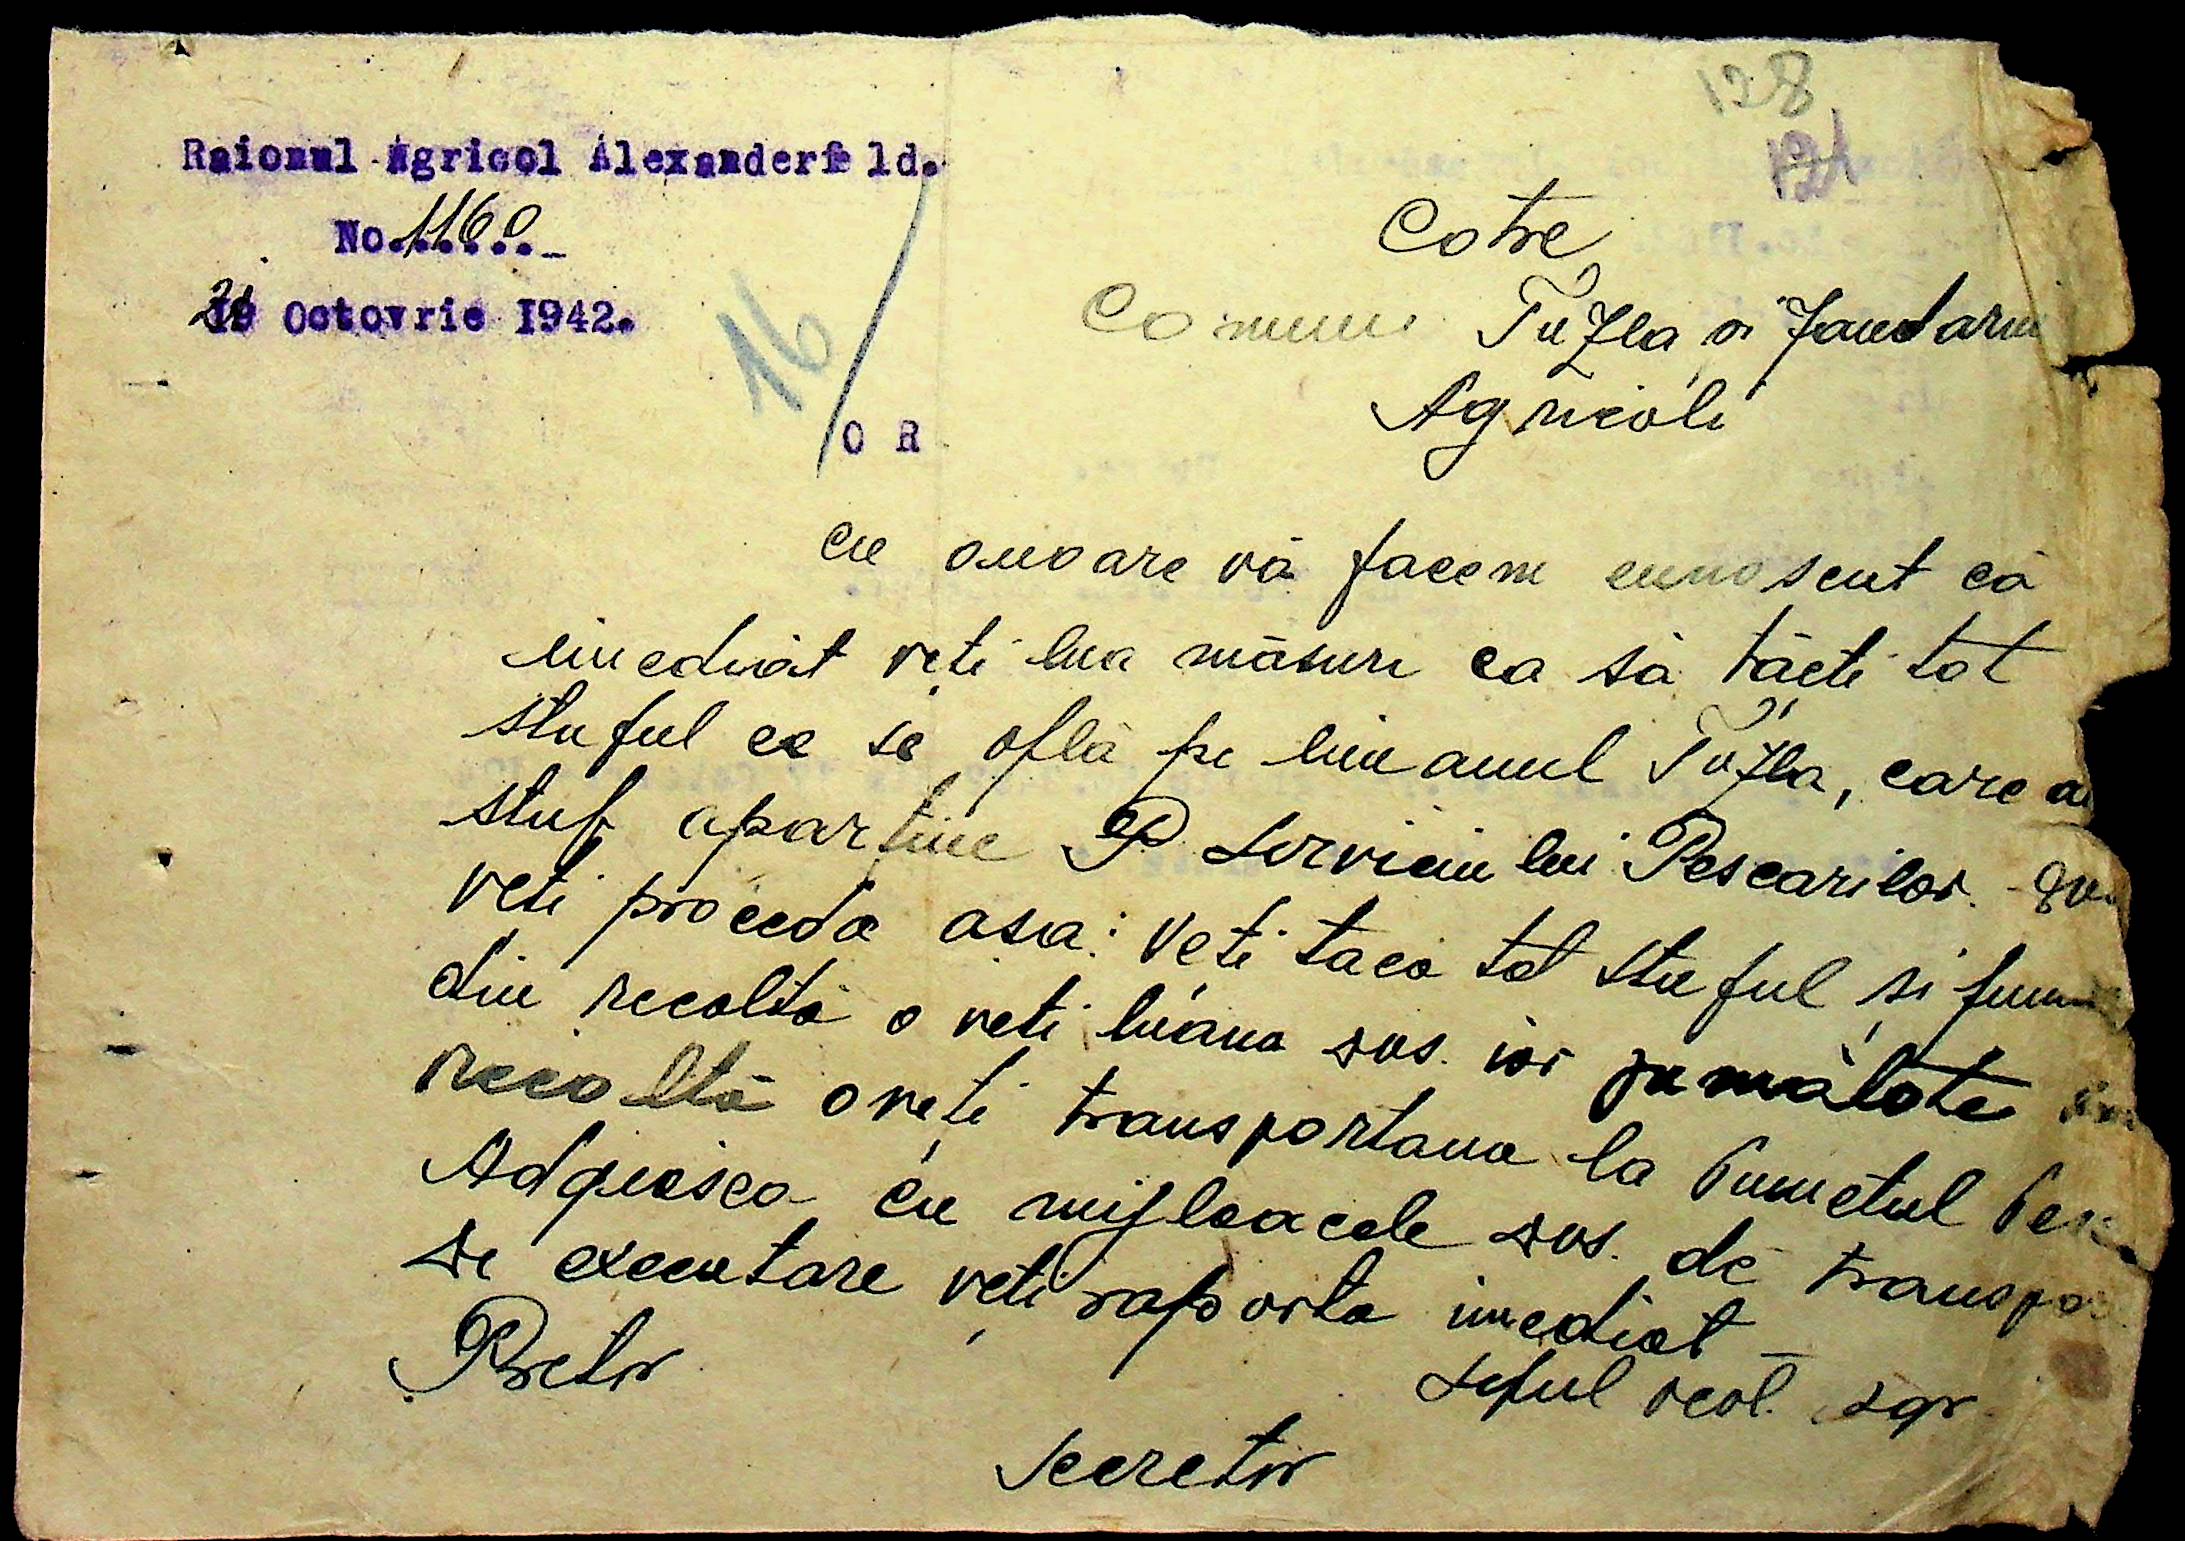 128
121
Raionul Agricol Alexanderfe ld.
No.1160
21 Octovrie 1942.
16
Cotre
Comuna Tuzla si Jandarm
Agricoli
O R
Cu onoare vă facem cunoscut că
imediat veti lua măsuri ca să tăeti tot
stuful ce se oflă pe limanul Tuzla, care
stuf aparține Serviciului Pescarilor.
veti proceda asa: Veti taea tot stuful și
din recoltă o veti dvs. iar jumàtote
recoltă o veți transportana la Punctul
cu mijloacele dvs. de transpor
de executare veti raporta imediat
Pretor
seful ocol. agr.
Secretor